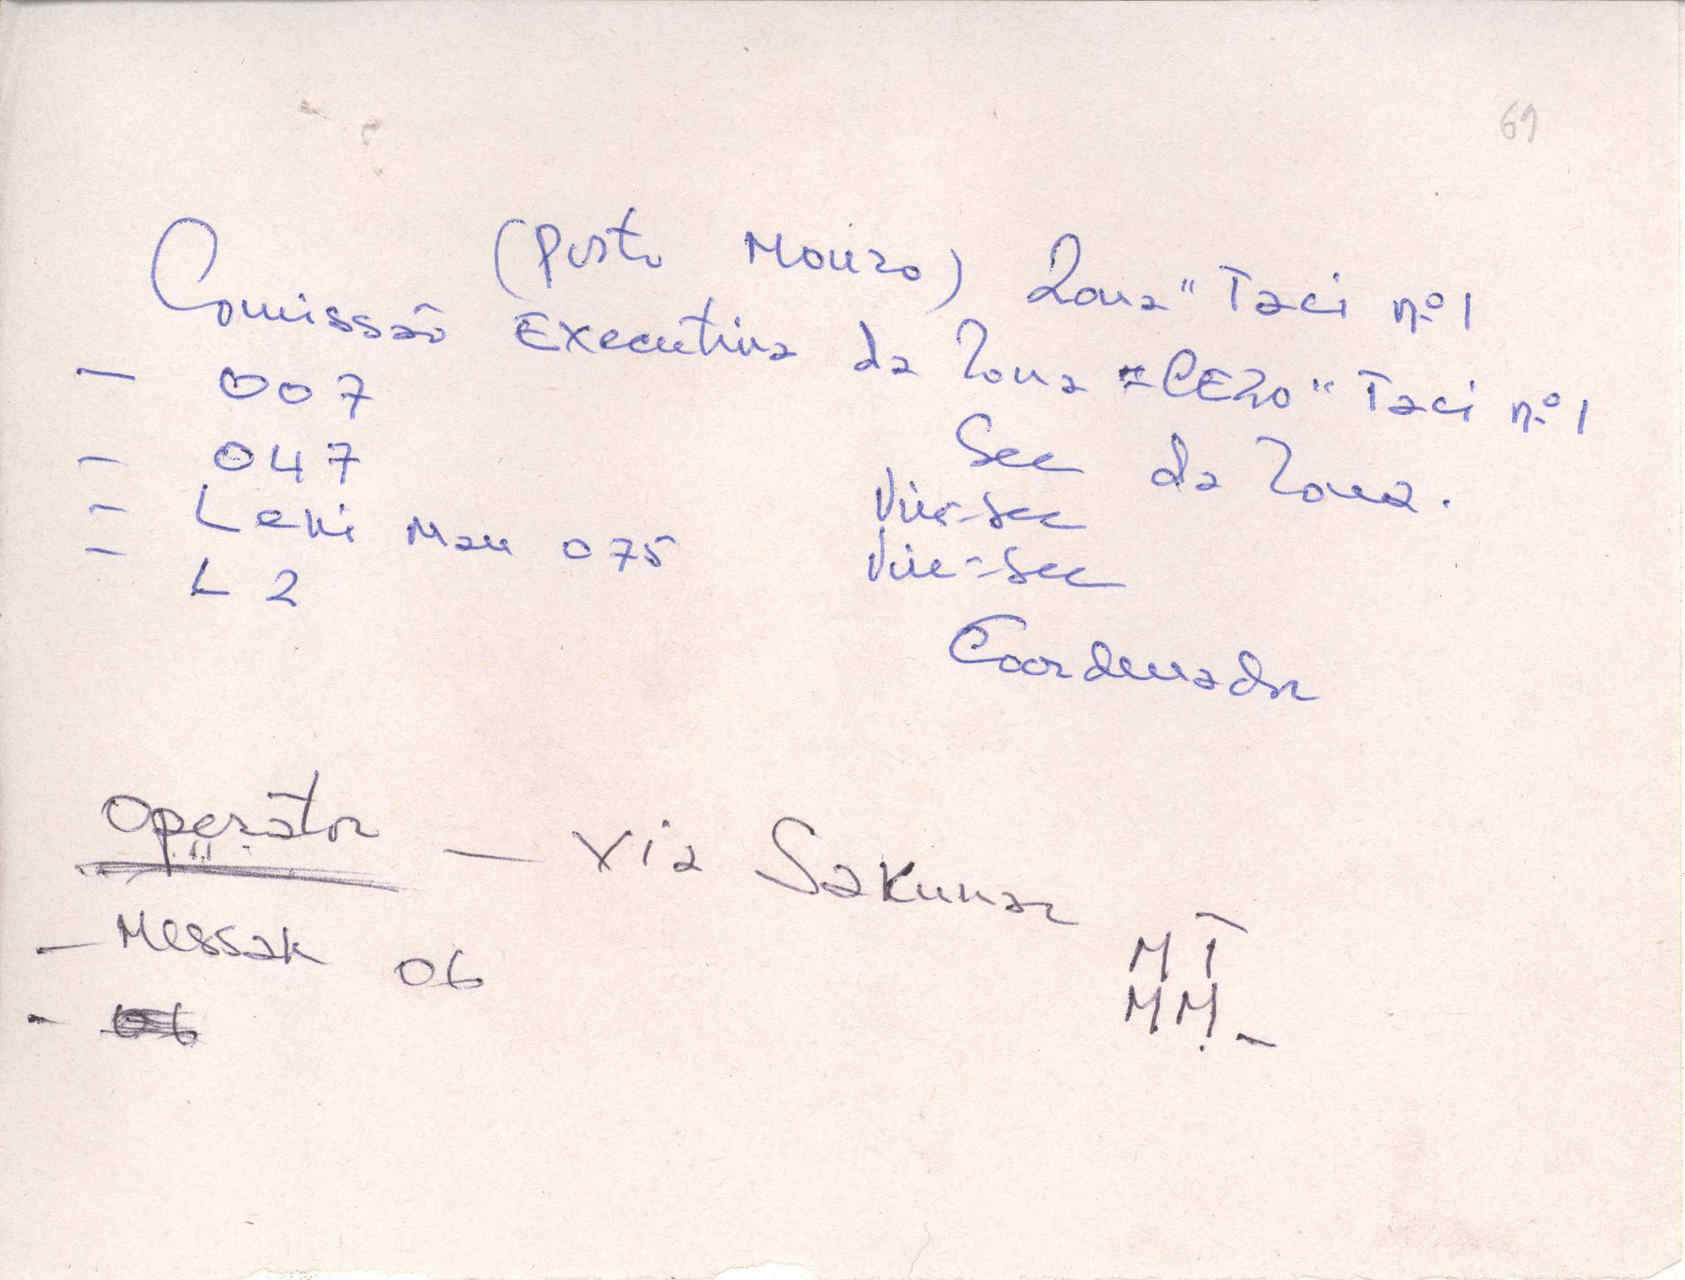 69
(Posto Mouro) Zona "Taci nº 1
Comissão Executiva da Zona "CEZO" Taci nº 1
- 007 Sec da Zona.
- 047 Vice-sec
- Leki Mau 075 Vice-sec
- L 2 Coordenador
Operator — Via Sakunar
- Messak 06 MT
- 06 MM. -